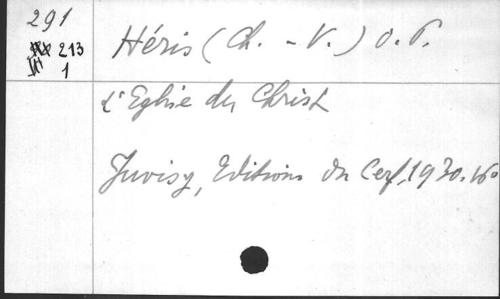 291
213
1
Héris (Ch. - V.) O.P.
L'Eglise du Christ
Juvisy, Editions du Cerf, 1930. 16°